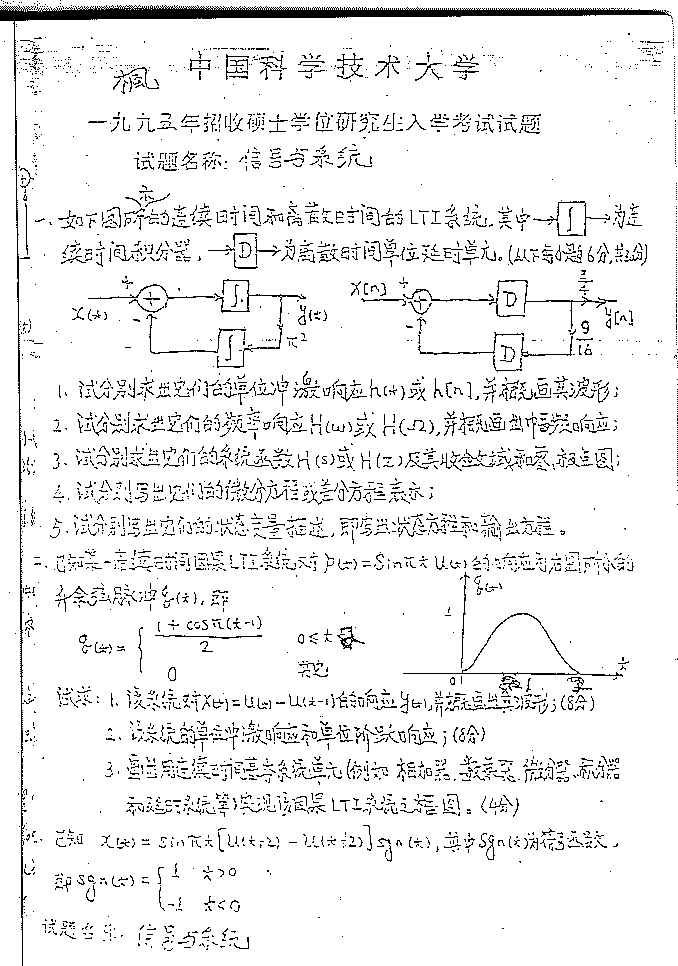 中国科学技术大学
一九九五年招收硕士学位研究生入学考试试题
试题名称: 信号与系统
一、如下图所示的连续时间和离散时间的LTI系统, 其中→∫→为连
续时间积分器, →D→为离散时间单位延时单元。(以下每小题6分,共30分)
+ + ∫ x(t) y(t) - ∫ π²
x[n] + + D 3/4 y[n] - D 9/16
1. 试分别求出它们的单位冲激响应h(t)或h[n],并概画其波形;
2. 试分别求出它们的频率响应H(ω)或H(Ω),并概画出幅频响应;
3. 试分别求出它们的系统函数H(s)或H(z)及其收敛域和零、极点图;
4. 试分别写出它们的微分方程或差分方程表示;
5. 试分别写出它们的状态变量描述, 即写出状态方程和输出方程。
二、已知某一连续时间因果LTI系统对p(t)=sinπt u(t)的响应为右图所示的
升余弦脉冲g(t), 即
g(t)= { 1+cosπ(t-1) / 2 0≤t
0 其它
g(t) 1 0 1 t
试求: 1. 该系统对x(t)=u(t)-u(t-1)的响应y(t),并概画出其波形;(8分)
2. 该系统的单位冲激响应和单位阶跃响应;(8分)
3. 画出用连续时间基本系统单元(例如相加器、数乘器、微分器、积分器
和延时系统等)实现该因果LTI系统之框图。(4分)
已知 x(t)=sinπt[u(t+2)-u(t-2)]sgn(t), 其中sgn(t)为符号函数,
即 sgn(t)= { 1 t>0
-1 t<0
试题名称: 信号与系统